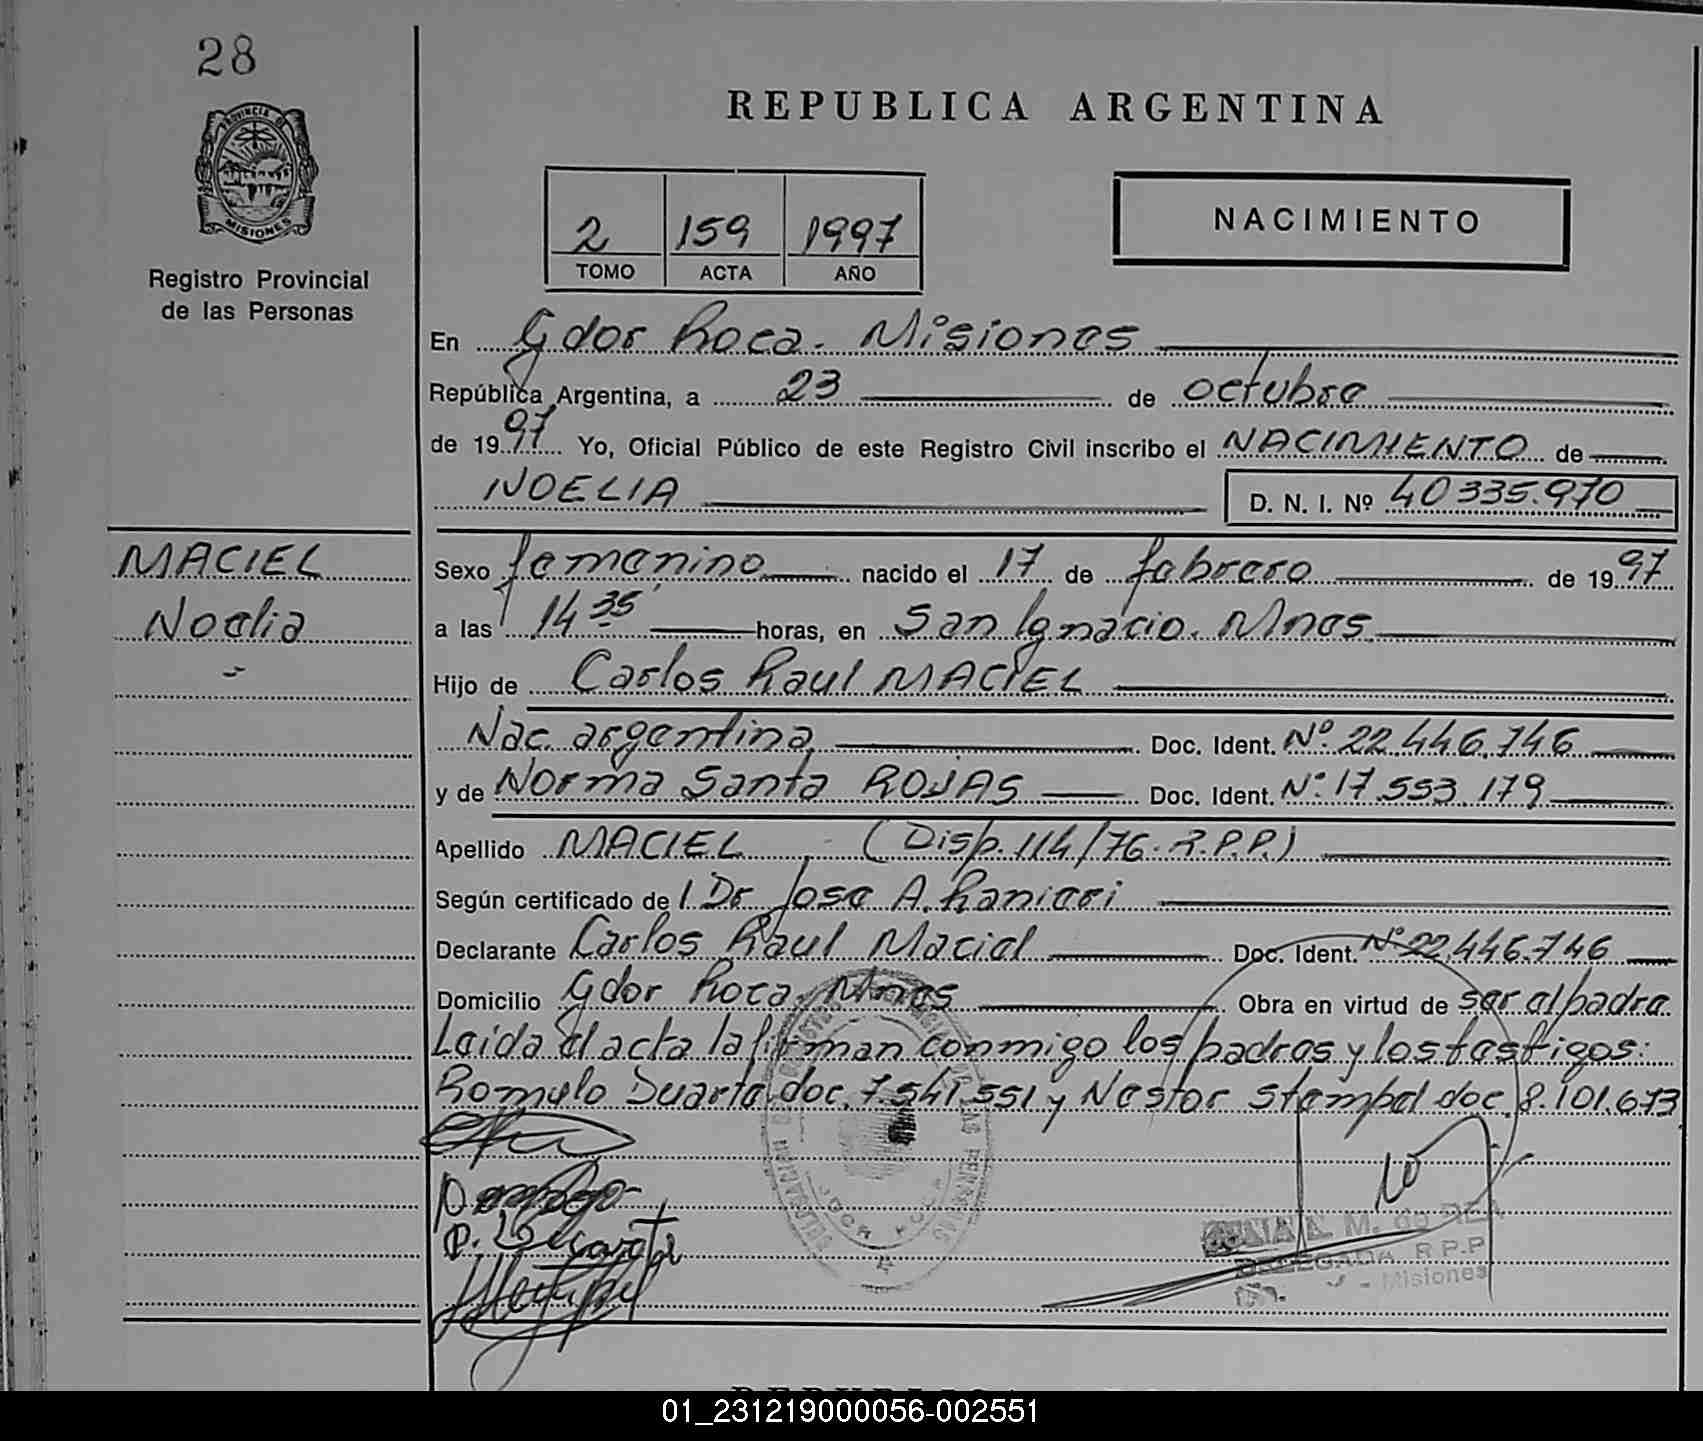 28
PROVINCIA DE
MISIONES
Registro Provincial
de las Personas
REPUBLICA ARGENTINA
2 159 1997
TOMO ACTA AÑO
NACIMIENTO
En Gdor Roca. Misiones
República Argentina, a 23 de octubre
de 1997 Yo, Oficial Público de este Registro Civil inscribo el NACIMIENTO de
NOELIA D. N. I. Nº 40335.970
MACIEL
Noelia
Sexo femenino nacido el 17 de febrero de 1997
a las 14 35 horas, en San Ignacio. Mnes
Hijo de Carlos Raul MACIEL
Nac. argentina Doc. Ident. Nº 22.446.746
y de Norma Santa ROJAS Doc. Ident. Nº 17.553.179
Apellido MACIEL (Disp. 114/76. R.P.P.)
Según certificado de l Dr Jose A. Ranieri
Declarante Carlos Raul Maciel Doc. Ident. Nº 22.446.746
Domicilio Gdor Roca. Mnes Obra en virtud de ser el padre.
Leida el acta la firman conmigo los padres y los testigos:
Romulo Duarte doc. 7.541.551 y Nestor Stempel doc. 8.101.673
M. de
DELEGADA R.P.P
Misiones
01_231219000056-002551